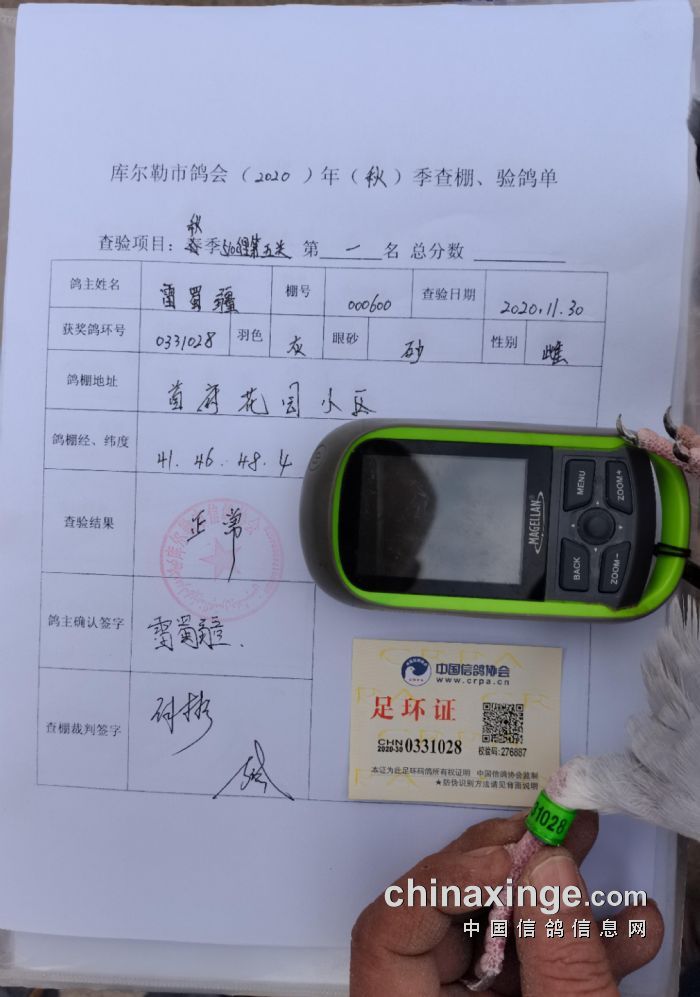 库尔勒市鸽会（2020）年（秋）季查棚、验鸽单
查验项目：秋季510狸第五关 第一名 总分数
鸽主姓名 雷蜀疆 棚号 000600 查验日期 2020.11.30
获奖鸽环号 0331028 羽色 灰 眼砂 砂 性别 雌
鸽棚地址 首府花园小区
鸽棚经、纬度 41.46.48.4
查验结果 正常
鸽主确认签字 雷蜀疆.
查棚裁判签字
MAGELLAN
MENU
ZOOM+
BACK
ZOOM-
中国信鸽协会
www.crpa.cn
足环证
CHN
2020-30 0331028
校验码:276887
本证为此足环码鸽所有权证明 中国信鸽协会监制
★防伪识别方法请见背面说明
31028
chinaxinge.com
中国信鸽信息网